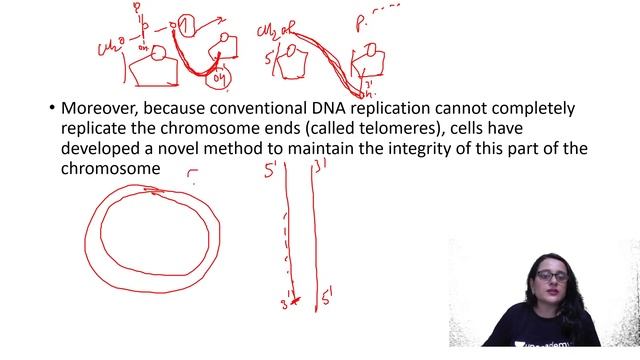 CH2O
OH
CH2OP
P.
5'
3'
OH
• Moreover, because conventional DNA replication cannot completely
replicate the chromosome ends (called telomeres), cells have
developed a novel method to maintain the integrity of this part of the
chromosome
5' 3'
3' 5'